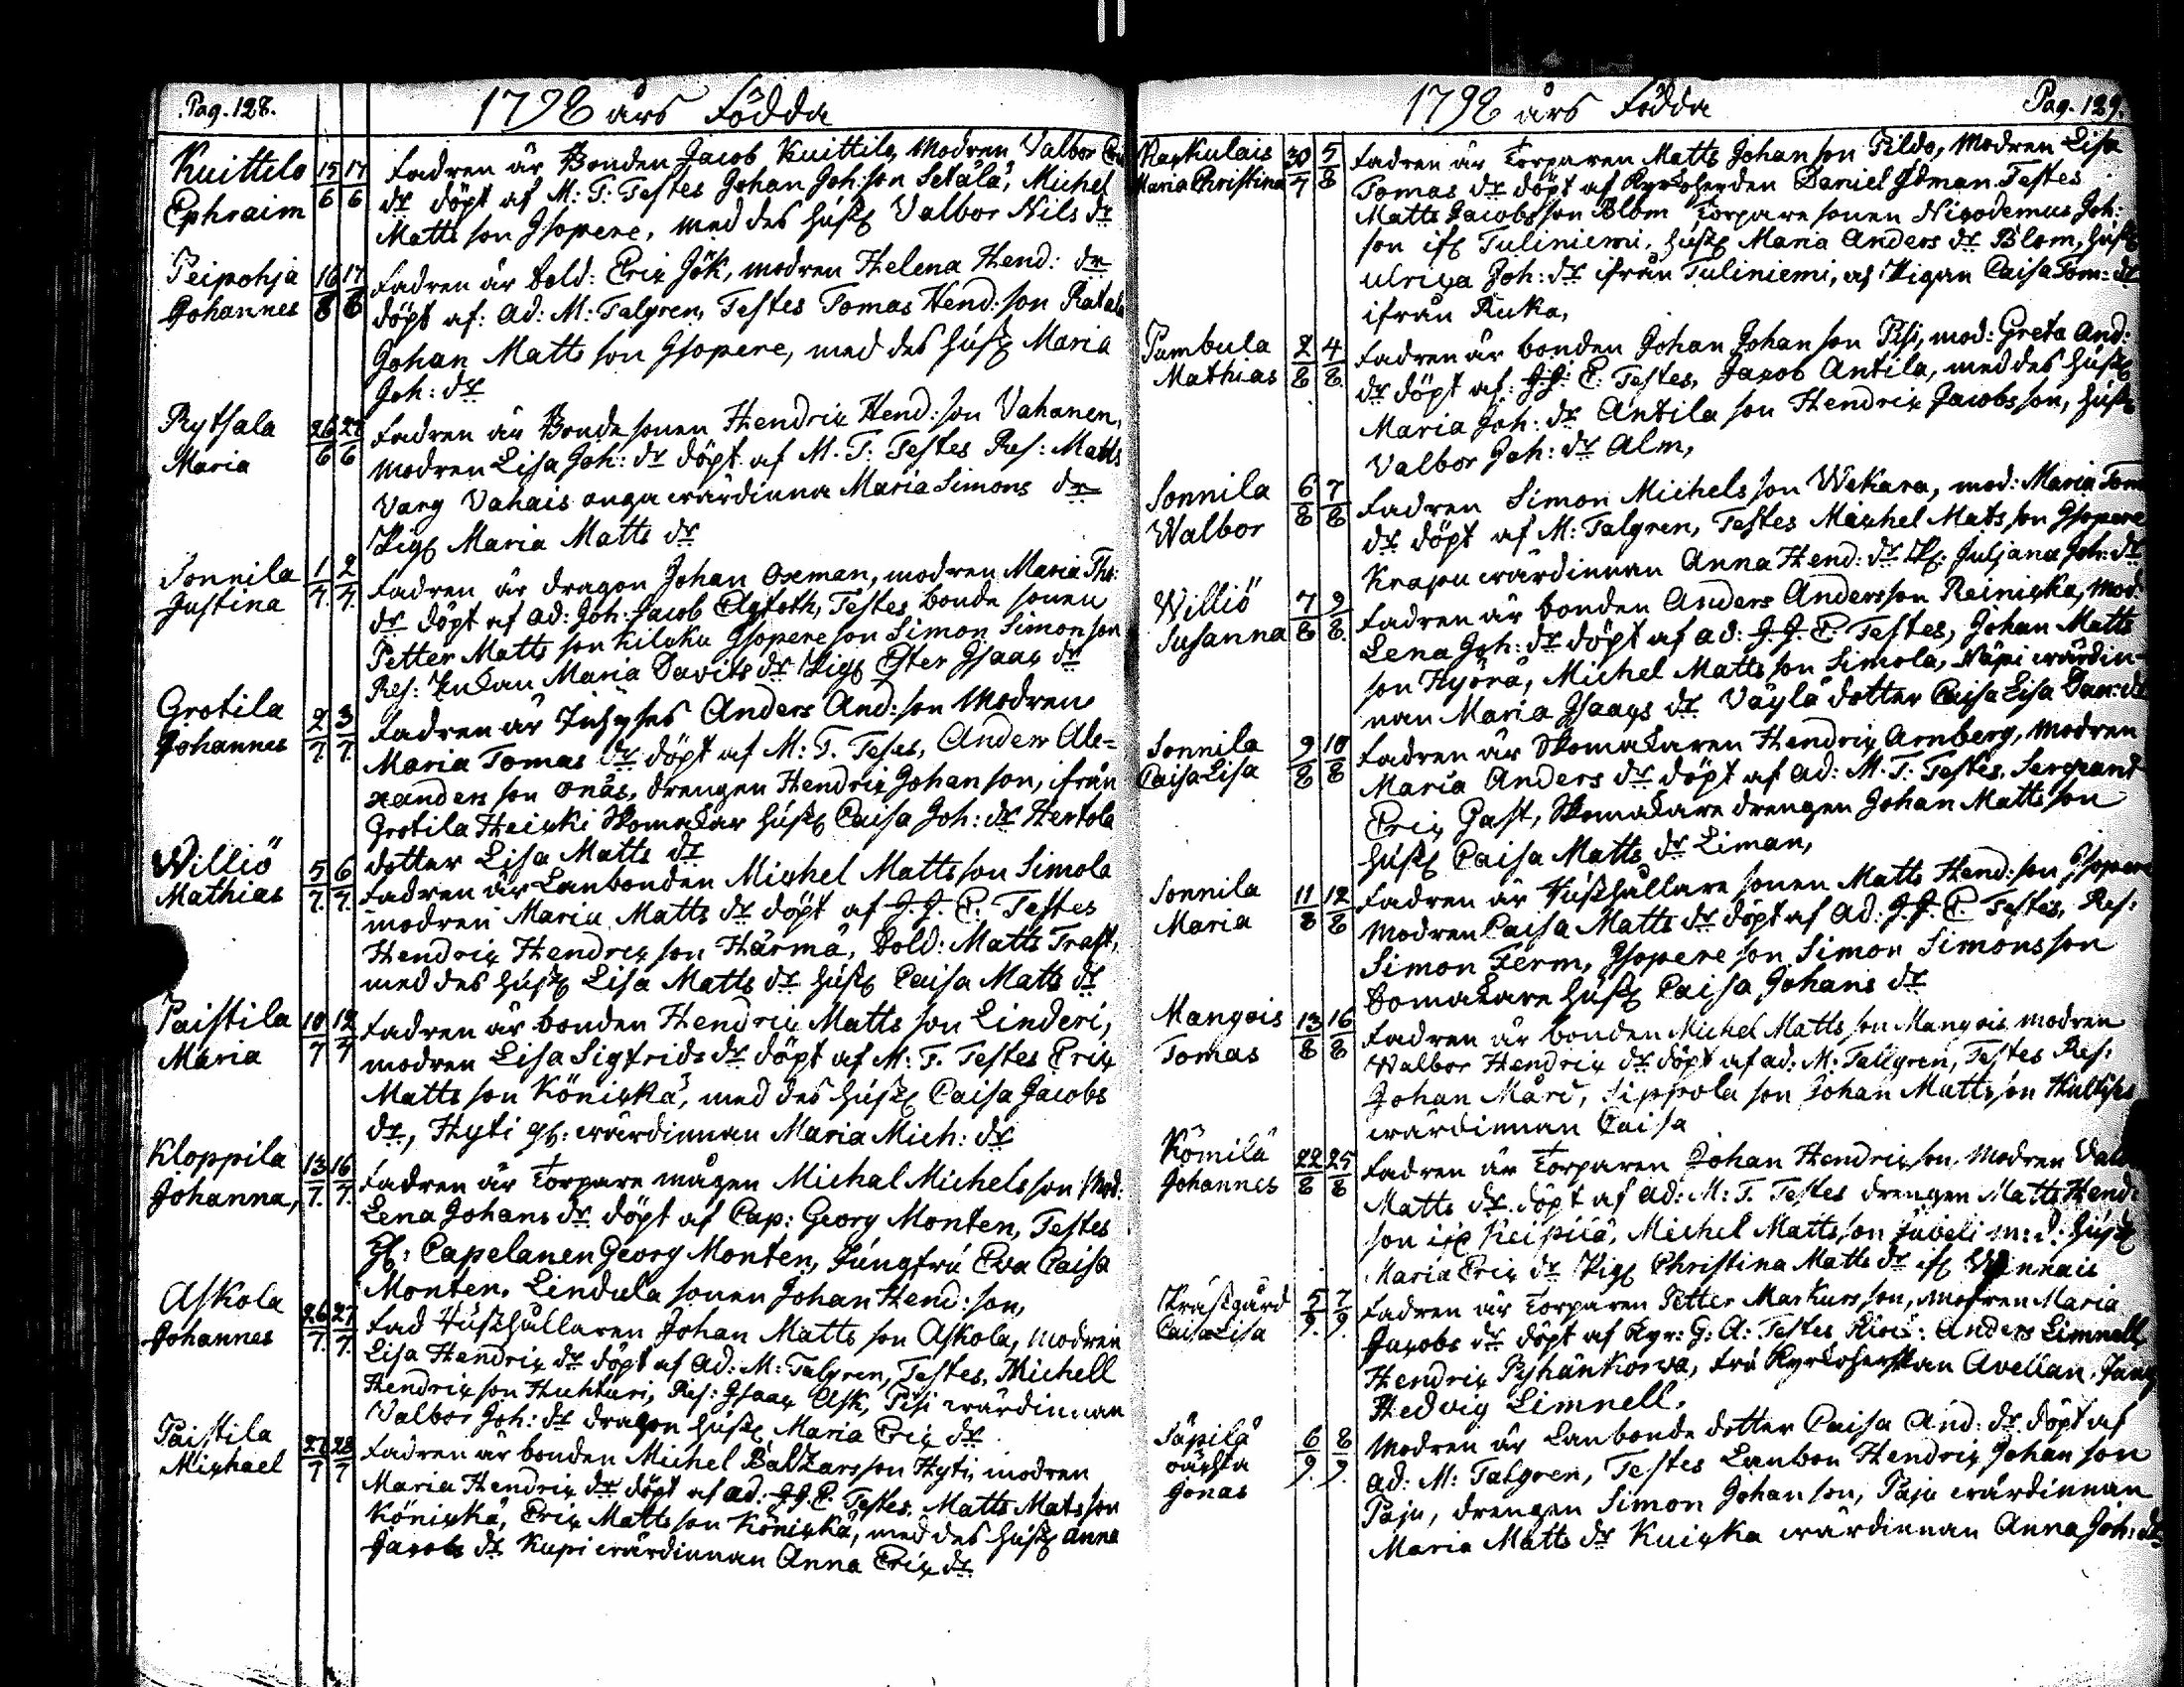 Pag. 128.
1798 års Födda
Kuittilo 15/6 17/6 Fadren är Bonden Jacob Kuittilo, Modren Valbor
Ephraim dr döpt af M: T: Testes Johan Joh:son Setälä, Michel
Matts son Isopere, med des hust Valbor Nils dr
Peipohja 16/8 17/8 Fadren är bold: Eric Jök, modren Helena Hend: dr
Johannes döpt af: ad: M: Talgren, Testes Tomas Hend: son
Johan Matts son Isopere, med des hust Maria
Joh: dr
Rytsala 26/6 27/6 Fadren är Bonde sonen Hendric Hend: son Vahanen,
Maria modren Lisa Joh: dr döpt af M. T. Testes Res: Matts
Varg Vahais onga wärdinna Maria Simons dr
Pig Maria Matts dr
Sonnila 1/7 2/7. Fadren är dragon Johan Oxman, modren Maria Tho:
Justina dr döpt af ad: Joh: Jacob Testes bonde sonen
Petter Matts son Kiloku Isopere son Simon Simonson
Res: Enkan Maria Davits dr Pig Ester Isaac dr
Grotila 2/7. 3/7. Fadren är Inhyses Anders And: son Modren
Johannes Maria Tomas dr döpt af M: T. Teses, Anders Ale=
xanders son Onäs, drengen Hendric Johan son, ifrån
Grotila Heicki Skomakar hust Caisa Joh: dr Hertola
dotter Lisa Matts dr
Williö 5/7. 6/7. Fadren är Lanbonden Michel Matts son Simola
Mathias modren Maria Matts dr döpt af J. J. E. Testes
Hendric Hendric son Härmä, bold: Matts Trast,
med des hust Lisa Matts dr hust Caisa Matts dr
Paistila 10/7 12/7 Fadren är bonden Hendric Matts son Linderi,
Maria modren Lisa Sigfrids dr döpt af M: T. Testes Eric
Matts son Könickä, med des hust Caisa Jacobs
dr, Hyti gl: wärdinnan Maria Mich: dr
Kloppila 13/7. 16/7. Fadren är Torpare mågen Michal Michels son Mod:
Johanna, Lena Johans dr döpt af Cap: Georg Monten, Testes
gl: Capelanen Georg Monten, Jungfru Eva Caisa
Monten. Lindula sonen Johan Hend: son,
Askola 26/7. 27/7. Fad Hushållaren Johan Matts son Askola, modren
Johannes Lisa Hendric dr döpt af ad: M: Talgren, Testes, Michell
Hendric son Huhturi, Res: Isaac Ask, Pisi wärdinnan
Valbor Joh: dr dragon hust Maria Eric dr
Paistila 27/7 28/7 Fadren är bonden Michel Baltzars son Hyti, modren
Michael Maria Hendric dr döpt af ad: J. J. E. Testes, Matts Mats son
Könickä, Eric Matts son Könickä, med des hust anna
Jacobs dr Kupi wärdinnan Anna Eric dr
1798 års Födda
Pag. 129.
Raskulais 30/7 5/8 Fadren är Torparen Matts Johan son Pildo, Modren Lisa
Maria Christina Tomas dr döpt af Kyrkoherden Daniel Idman. Testes
Matts Jacobs son Blom Torpare sonen Nicodemus Joh:
son if Tuliniemi, hust Maria Anders dr Blom, hust
Ulrica Joh: dr ifrån Tuliniemi, af Pigan Caisa Tom: dr
ifrån Ruka,
Pambula 2/8 4/8 Fadren är bonden Johan Johan son Pisi, mod: Greta And:
Mathias dr döpt af: J. J. E. Testes, Jacob Antila, med des hust
Maria Joh: dr Antila son Hendric Jacobs son, hust
Valbor Joh: dr Alm,
Sonnila 6/8 7/8 Fadren Simon Michels son Wekara, mod: Maria Tom
Walbor dr döpt af M: Talgren, Testes Michel Mats son Isopere
Krapu wärdinnan Anna Hend: dr P: Juljana Joh: dr
Williö 7/8 9/8 Fadren är bonden Anders Andersson Reinicka, mod
Susanna Lena Joh: dr döpt af ad: J. J. E. Testes, Johan Matts
son Hyörä, Michel Matts son Simola, Näpi wärdin-
nan Maria Isaacs dr Väylä dotter Caisa Lisa Dan: dr
Sonnila 9/8 10/8 Fadren är Skomakaren Hendric Arnberg, modren
Caisa Lisa Maria Anders dr döpt af ad: M. T: Testes, Sergeant
Eric Gast, Skomakare drengen Johan Matts son
hust Caisa Matts dr Liman,
Sonnila 11/8 12/8 Fadren är Hushållare sonen Matts Hend: son Isopere
Maria Modren Caisa Matts dr döpt af ad: J. J. E. Testes, Res:
Simon Ferm, Isopere son Simon Simons son
Somakare hust Caisa Johans dr
Mangois 13/8 16/8 Fadren är bonden Michel Matts son Mangois modren
Tomas Walbor Hendric dr döpt af ad: M: Tallgren, Testes Res:
Johan Mård, Sippola son Johan Matts son
wärdinnan Caisa
Kömilä 22/8 25/8 Fadren är Torparen Johan Hendric son, Modren Valb
Johannes Matts dr döpt af ad: M: T. Testes drengen Matts Hend:
son if Keipilä, Michel Matts son Juveli m: d: hust
Maria Eric dr Pig Christina Matts dr if Winnais
Prästgård 5/9. 7/9. Fadren är Torparen Petter Markus son, modren Maria
Caisa Lisa Jacobs dr döpt af Kyr: G: A: Testes Anders Limnell,
Hendric Pyhänkorva, fru Kyrkoherskan Avellan. Jung
Hedvig Limnell.
Säpilä 6/9. 8/9. Modren är Lanbonde dotter Caisa And: dr döpt af
oäckta ad: M: Talgren, Testes Lanbon Hendric Johan son
Jonas Paju, drengen Simon Johan son, Paju wärdinnan
Maria Matts dr Kuicka wärdinnan Anna Joh: dr